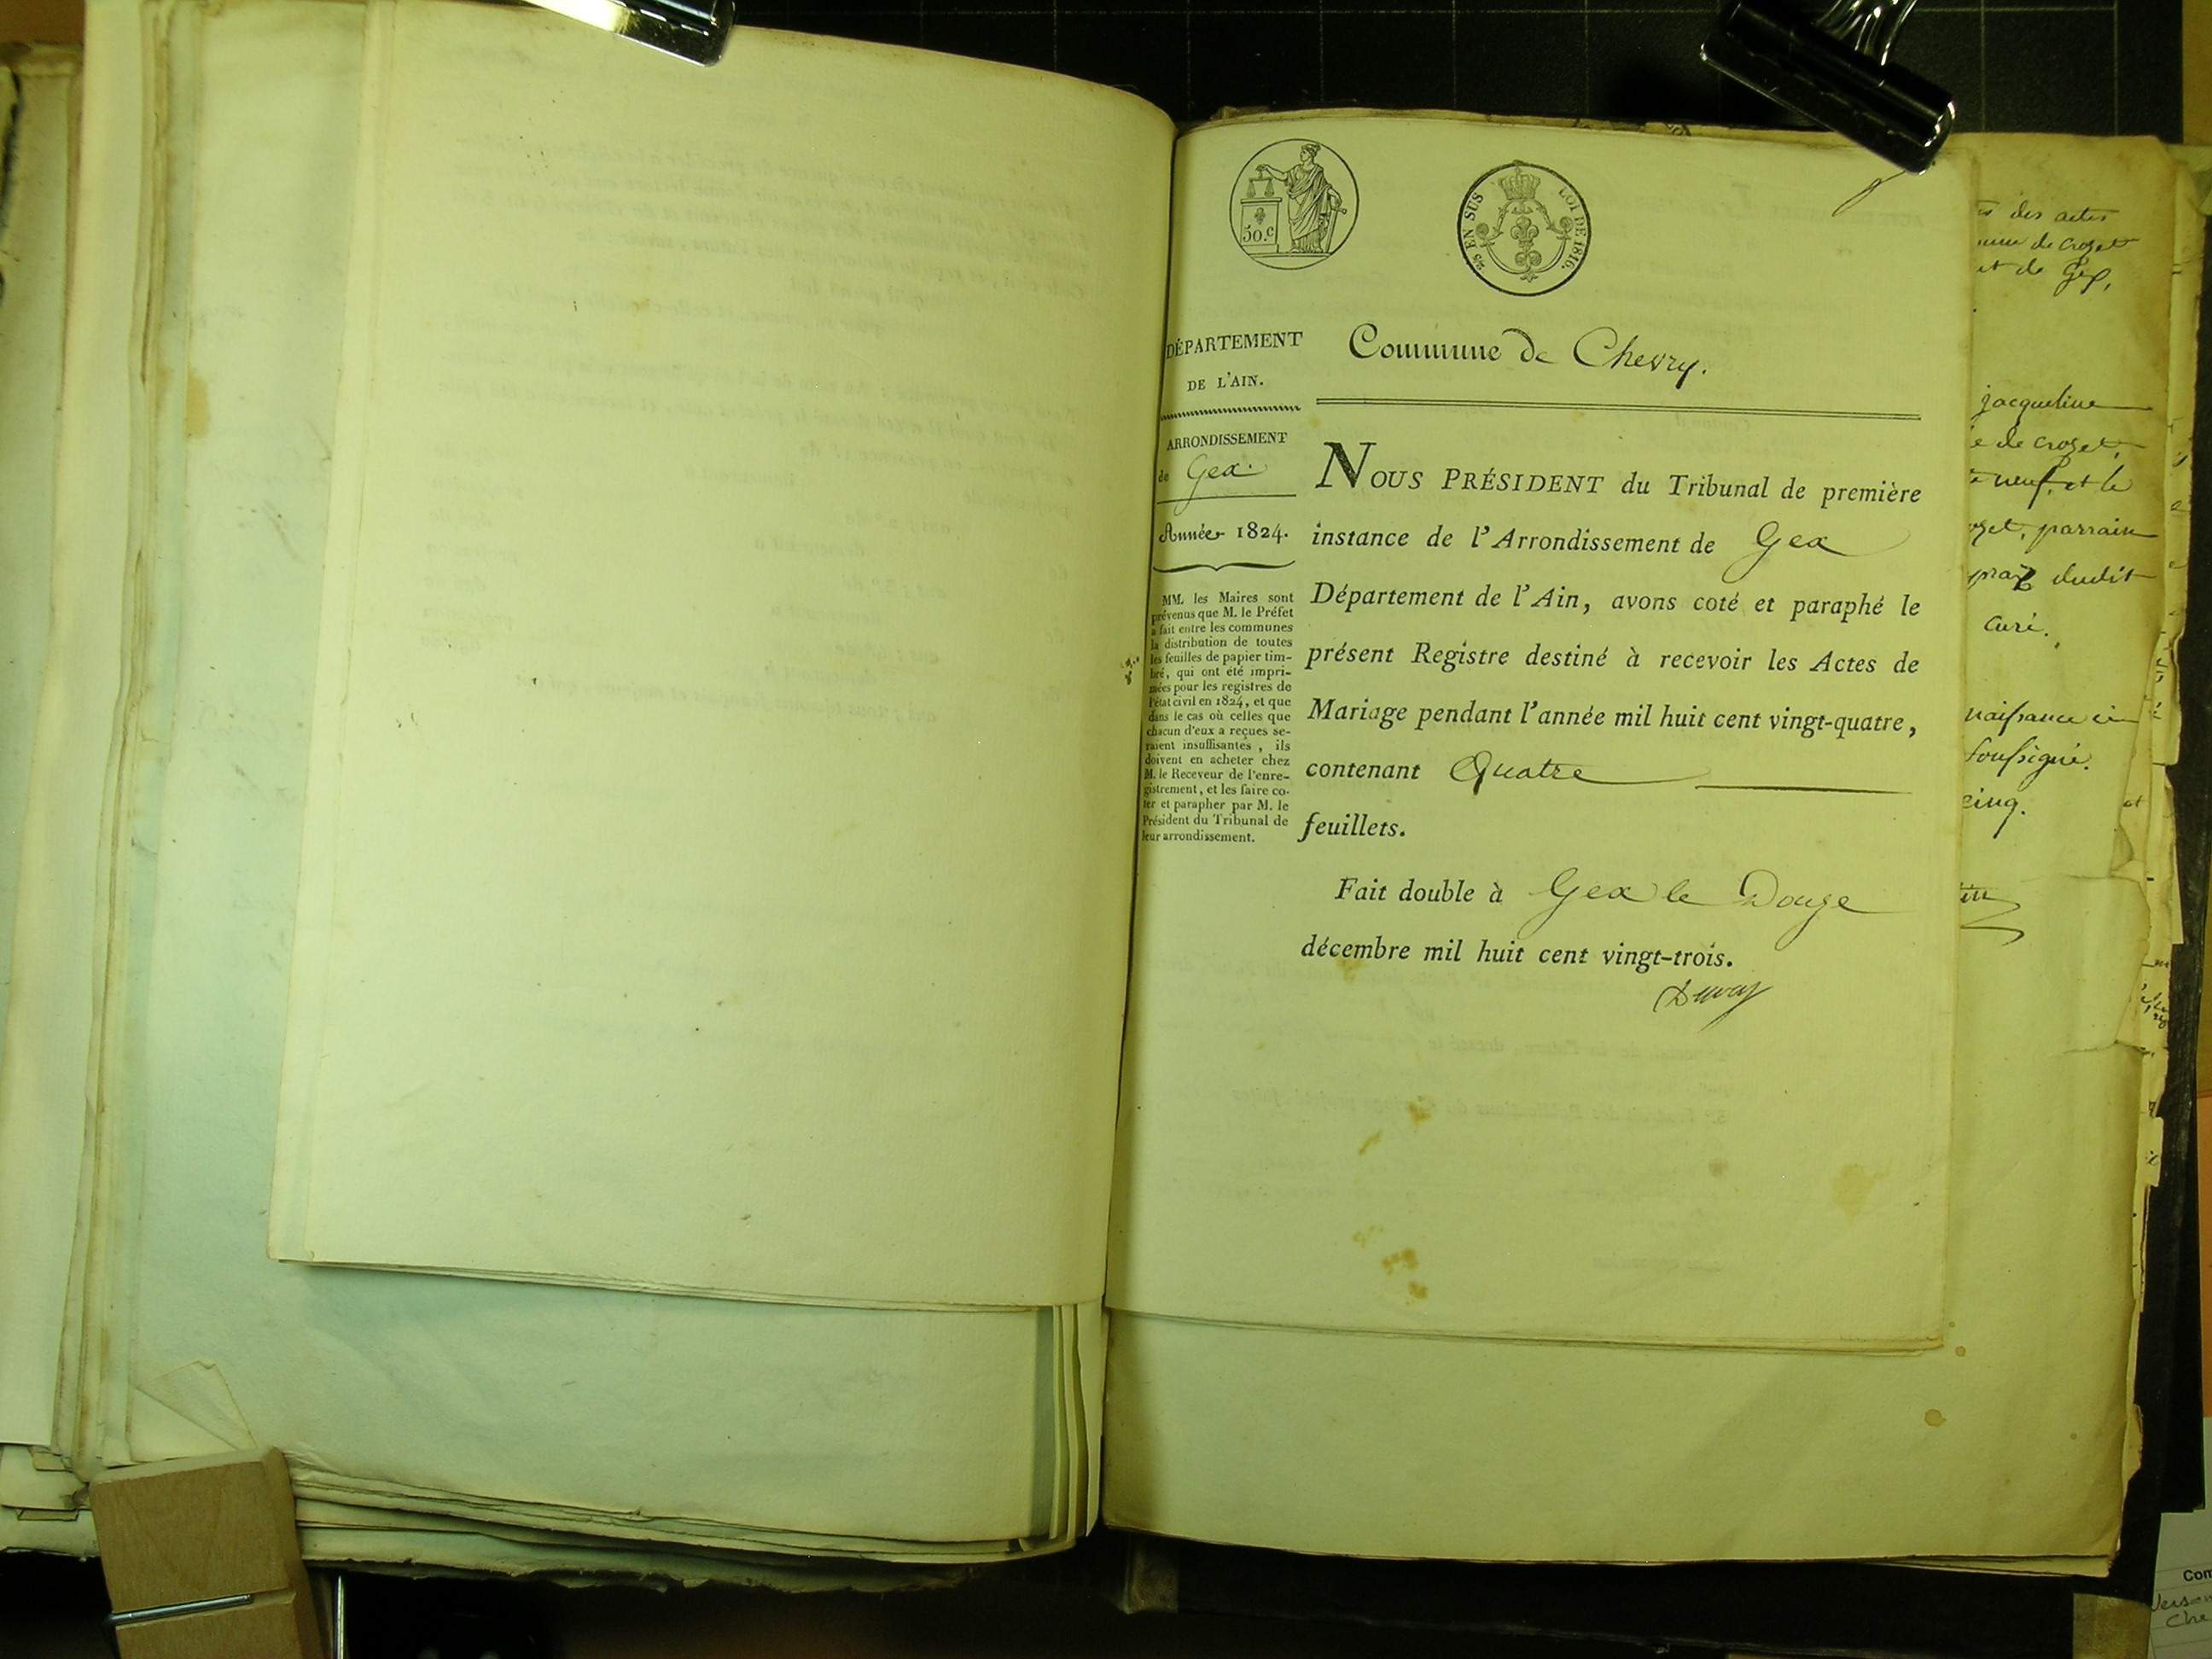 50.c
2/5 EN SUS
LOI DE 1816.
DÉPARTEMENT
DE L'AIN.
ARRONDISSEMENT
de Gex.
Année 1824.
MM. les Maires sont
prévenus que M. le Préfet
a fait entre les communes
la distribution de toutes
les feuilles de papier tim-
bré, qui ont été impri-
mées pour les registres de
l'état civil en 1824, et que
dans le cas où celles que
chacun d'eux a reçues se-
raient insuffisantes, ils
doivent en acheter chez
M. le Receveur de l'enre-
gistrement, et les faire co-
ter et parapher par M. le
Président du Tribunal de
leur arrondissement.
Commune de Chevry.
NOUS PRÉSIDENT du Tribunal de première
instance de l'Arrondissement de Gex
Département de l'Ain, avons coté et paraphé le
présent Registre destiné à recevoir les Actes de
Mariage pendant l'année mil huit cent vingt-quatre,
contenant Quatre
feuillets.
Fait double à Gex le Douze
décembre mil huit cent vingt-trois.
des actes
de crozet
et de Gex,
jacqueline
e de crozet,
neuf, et le
ozet, parrain
dudit
curé.
naissance
soussigné.
cinq.
et
Com
Che